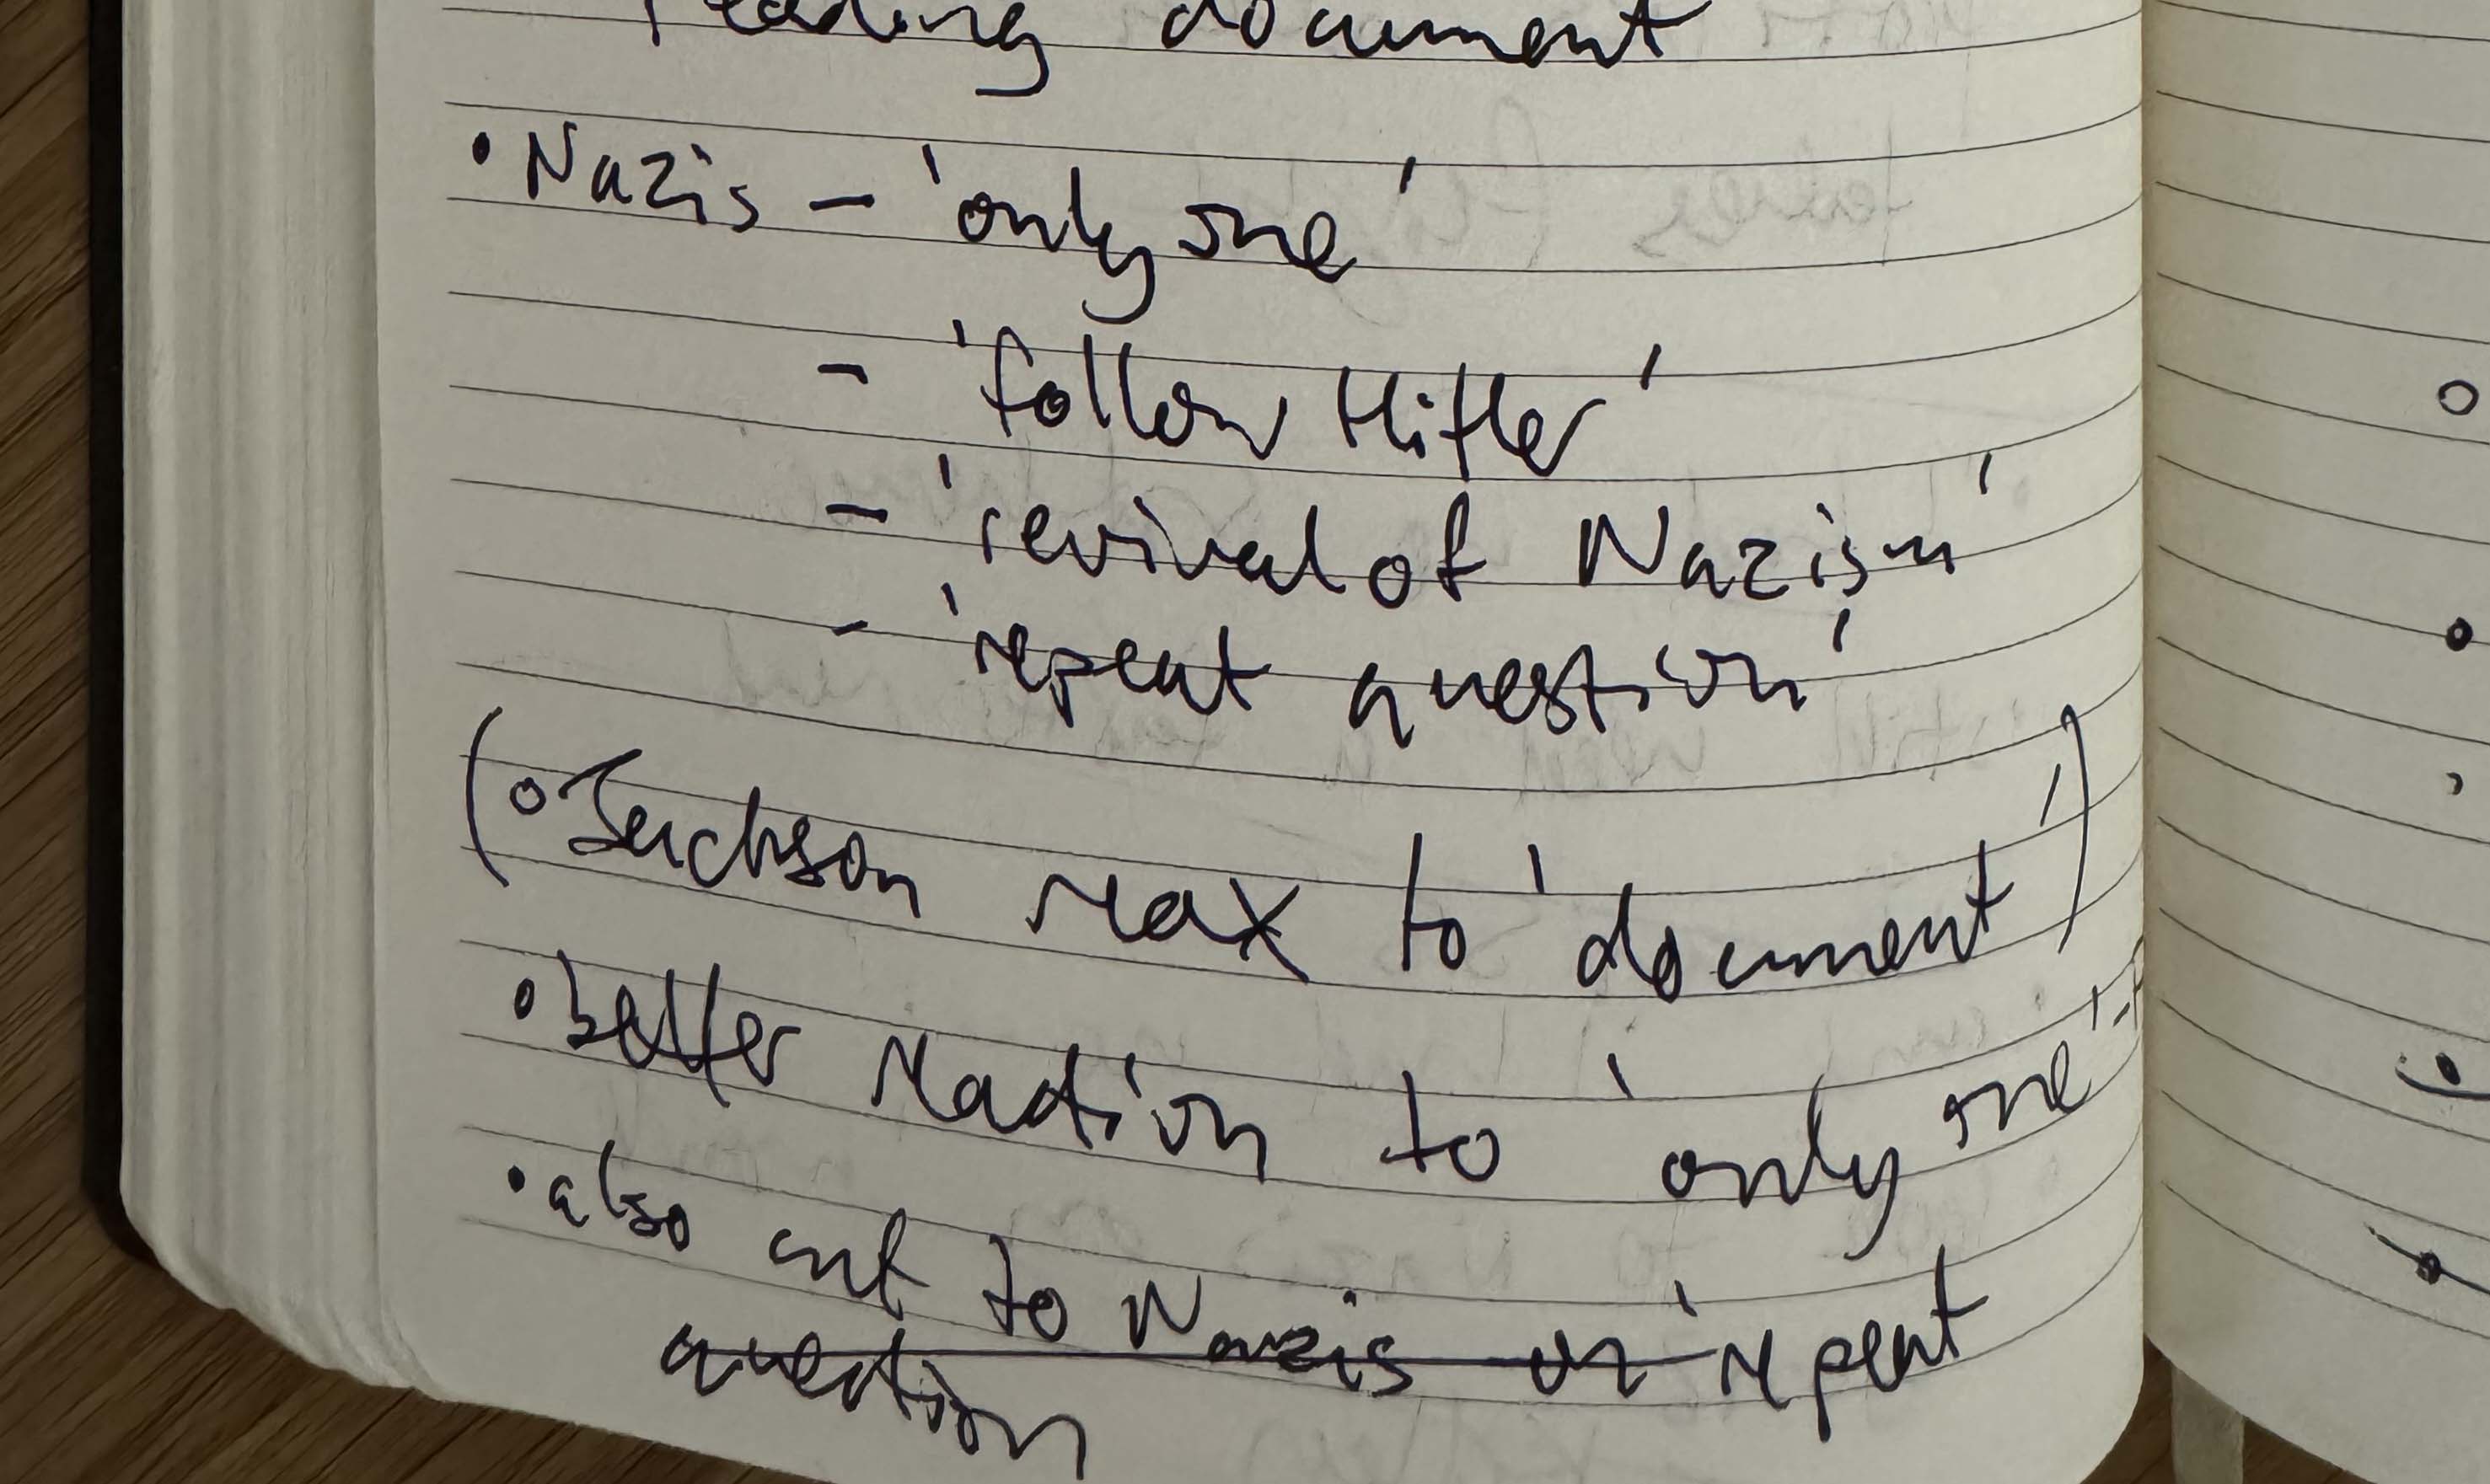 reading document
• Nazis – 'only one'
– 'follow Hitler'
– 'revival of Nazism'
– 'repeat question'
(• Jackson reax to 'document')
• better reaction to 'only one' -
• also cut to Nazis on 'repeat
question